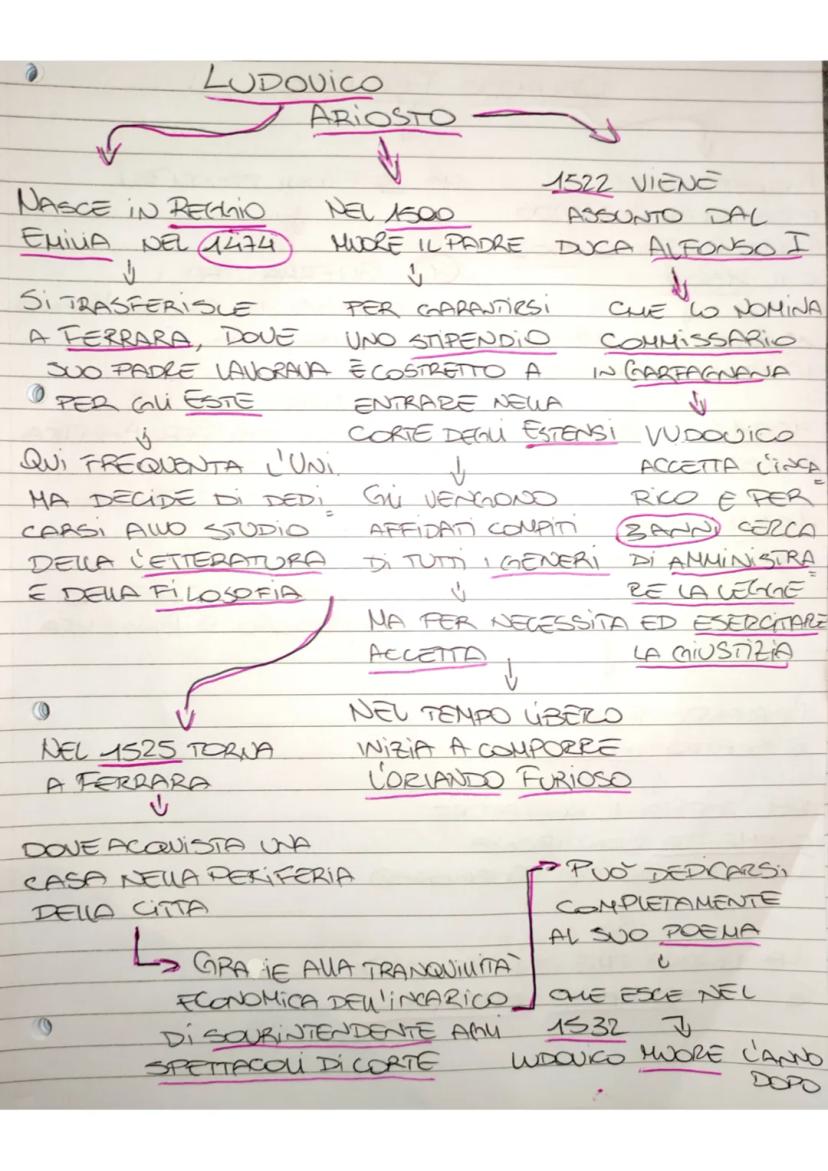 LUDOVICO
ARIOSTO
NASCE IN REGGIO
EMILIA NEL 1474
SI TRASFERISCE
A FERRARA, DOVE
SUO PADRE LAVORAVA
PER GLI ESTE
QUI FREQUENTA L'UNI
MA DECIDE DI DEDI=
CARSI ALLO STUDIO
DELLA LETTERATURA
E DELLA FILOSOFIA
NEL 1500
MUORE IL PADRE
PER GARANTIRSI
UNO STIPENDIO
È COSTRETTO A
ENTRARE NELLA
CORTE DEGLI ESTENSI
GLI VENGONO
AFFIDATI COMPITI
DI TUTTI I GENERI
MA PER NECESSITA
ACCETTA
NEL TEMPO LIBERO
INIZIA A COMPORRE
L'ORLANDO FURIOSO
1522 VIENE
ASSUNTO DAL
DUCA ALFONSO I
CHE LO NOMINA
COMMISSARIO
IN GARFAGNANA
LUDOVICO
ACCETTA L'INCA=
RICO E PER
3 ANNI CERCA
DI AMMINISTRA=
RE LA LEGGE
ED ESERCITARE
LA GIUSTIZIA
NEL 1525 TORNA
A FERRARA
DOVE ACQUISTA UNA
CASA NELLA PERIFERIA
DELLA CITTA
GRAZIE ALLA TRANQUILLITÀ
ECONOMICA DELL'INCARICO
DI SOVRINTENDENTE AGLI
SPETTACOLI DI CORTE
PUÒ DEDICARSI
COMPLETAMENTE
AL SUO POEMA
CHE ESCE NEL
1532
LUDOVICO MUORE L'ANNO
DOPO